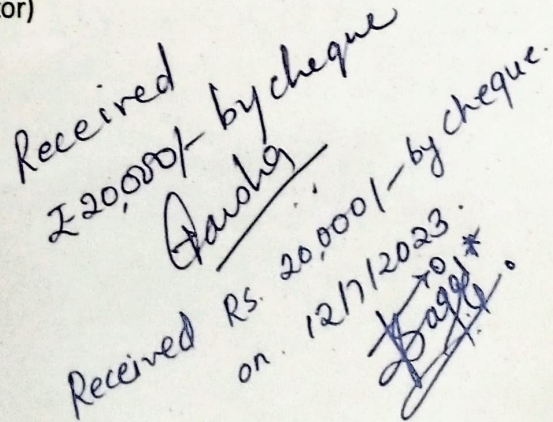 tor)
Received
₹20,000/- by cheque
Received Rs. 20,000/- by cheque.
on. 12/7/2023.